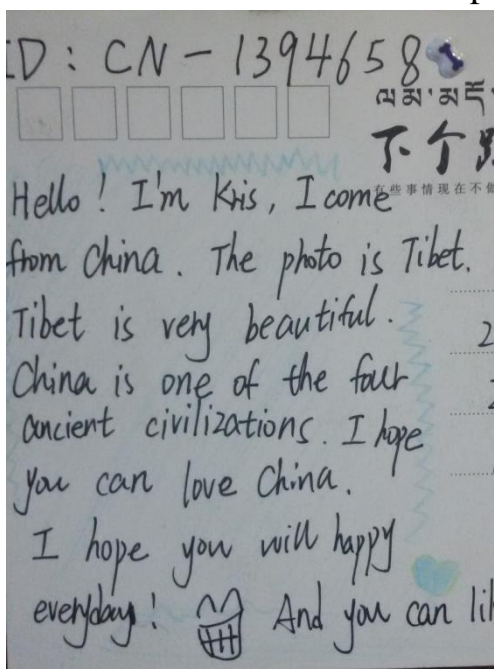 ID: CN-1394658
ལྷ་ས་
下个
有些事情现在不做
Hello! I'm Kris, I come
from China. The photo is Tibet.
Tibet is very beautiful.
China is one of the four
ancient civilizations. I hope
you can love China.
I hope you will happy
everyday! And you can